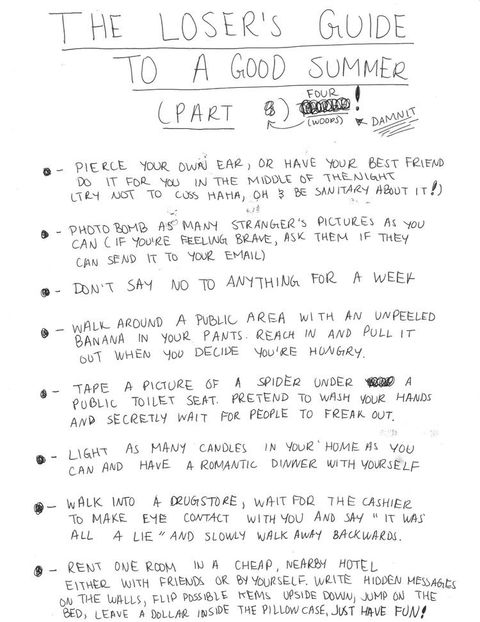 THE LOSER'S GUIDE
TO A GOOD SUMMER
(PART 3) FOUR!
(WOOPS) DAMNIT
- PIERCE YOUR OWN EAR, OR HAVE YOUR BEST FRIEND
DO IT FOR YOU IN THE MIDDLE OF THE NIGHT
(TRY NOT TO CUSS HAHA, OH & BE SANITARY ABOUT IT!)
- PHOTO BOMB AS MANY STRANGER'S PICTURES AS YOU
CAN (IF YOU'RE FEELING BRAVE, ASK THEM IF THEY
CAN SEND IT TO YOUR EMAIL)
- DON'T SAY NO TO ANYTHING FOR A WEEK
- WALK AROUND A PUBLIC AREA WITH AN UNPEELED
BANANA IN YOUR PANTS. REACH IN AND PULL IT
OUT WHEN YOU DECIDE YOU'RE HUNGRY.
- TAPE A PICTURE OF A SPIDER UNDER A
PUBLIC TOILET SEAT. PRETEND TO WASH YOUR HANDS
AND SECRETLY WAIT FOR PEOPLE TO FREAK OUT.
- LIGHT AS MANY CANDLES IN YOUR HOME AS YOU
CAN AND HAVE A ROMANTIC DINNER WITH YOURSELF
- WALK INTO A DRUGSTORE, WAIT FOR THE CASHIER
TO MAKE EYE CONTACT WITH YOU AND SAY "IT WAS
ALL A LIE" AND SLOWLY WALK AWAY BACKWARDS.
- RENT ONE ROOM IN A CHEAP, NEARBY HOTEL
EITHER WITH FRIENDS OR BY YOURSELF. WRITE HIDDEN MESSAGES
ON THE WALLS, FLIP POSSIBLE ITEMS UPSIDE DOWN, JUMP ON THE
BED, LEAVE A DOLLAR INSIDE THE PILLOWCASE, JUST HAVE FUN!